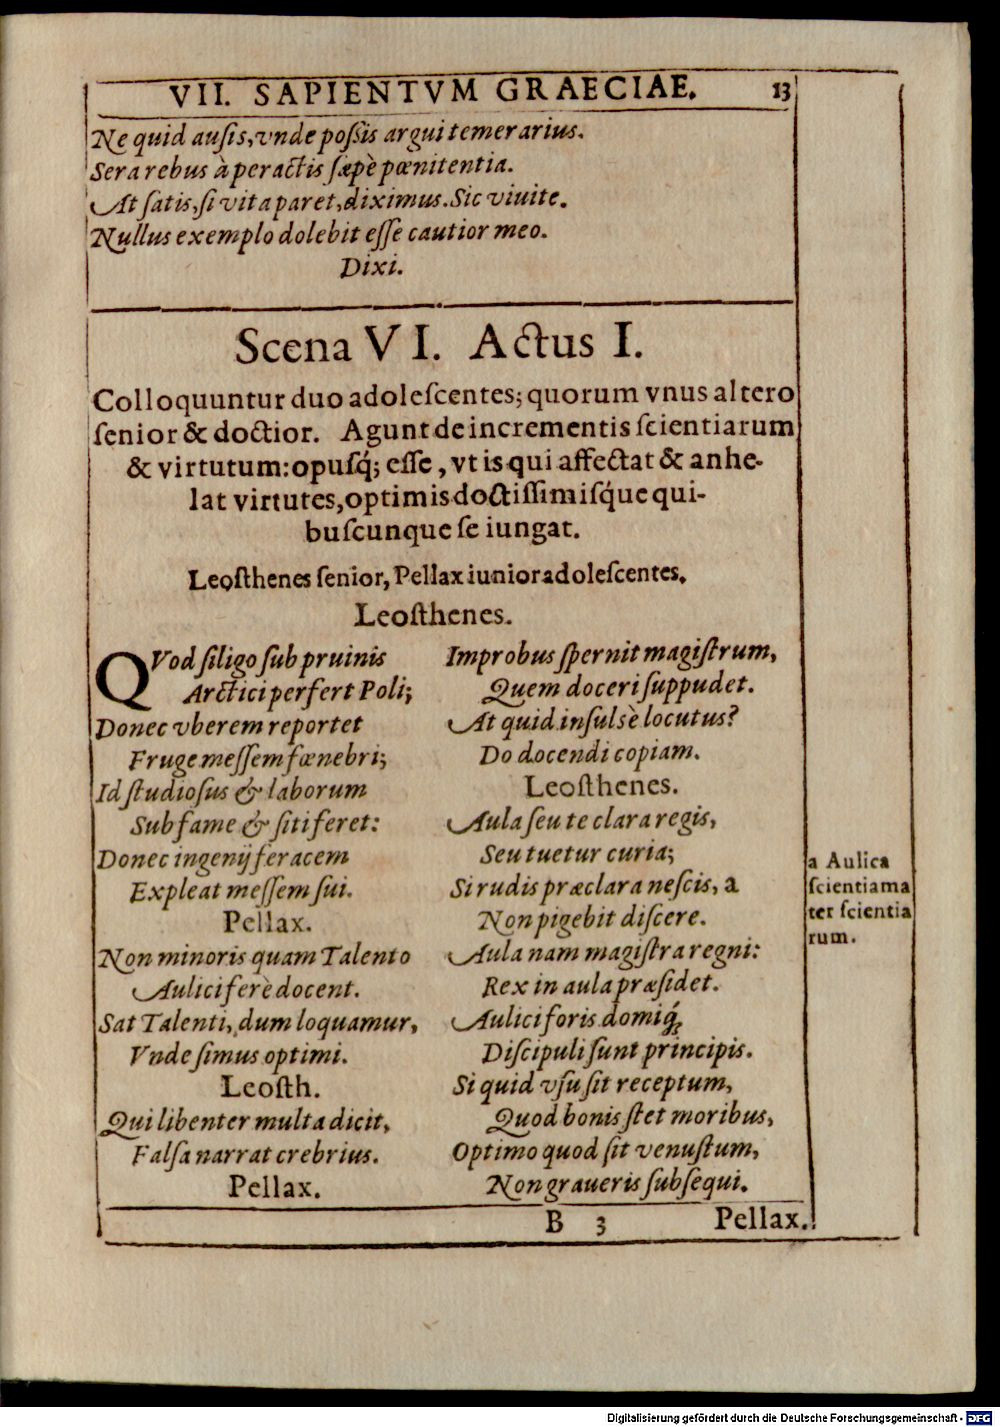 VII. SAPIENTVM GRAECIAE. 13
Ne quid ausis, vnde possis argui temerarius.
Sera rebus à peractis sæpè pœnitentia.
At satis, si vita paret, diximus. Sic viuite.
Nullus exemplo dolebit esse cautior meo.
Dixi.
Scena VI. Actus I.
Colloquuntur duo adolescentes; quorum vnus altero
senior & doctior. Agunt de incrementis scientiarum
& virtutum: opusq́; esse, vt is qui affectat & anhe-
lat virtutes, optimis doctissimisq́ue qui-
buscunque se iungat.
Leosthenes senior, Pellax iunior adolescentes.
Leosthenes.
QVod siligo sub pruinis
Arctici perfert Poli;
Donec vberem reportet
Fruge messem fœnebri;
Id studiosus & laborum
Sub fame & siti feret:
Donec ingenij feracem
Expleat messem sui.
Pellax.
Non minoris quam Talento
Aulici ferè docent.
Sat Talenti, dum loquamur,
Vnde simus optimi.
Leosth.
Qui libenter multa dicit,
Falsa narrat crebrius.
Pellax.
Improbus spernit magistrum,
Quem doceri suppudet.
At quid insulsè locutus?
Do docendi copiam.
Leosthenes.
Aula seu te clara regis,
Seu tuetur curia;
Si rudis præclara nescis, a
Non pigebit discere.
Aula nam magistra regni:
Rex in aula præsidet.
Aulici foris domiq́;
Discipuli sunt principis.
Si quid vsu sit receptum,
Quod bonis stet moribus,
Optimo quod sit venustum,
Non graueris subsequi.
a Aulica
scientia ma
ter scientia
rum.
B 3 Pellax.
Digitalisierung gefördert durch die Deutsche Forschungsgemeinschaft - DFG